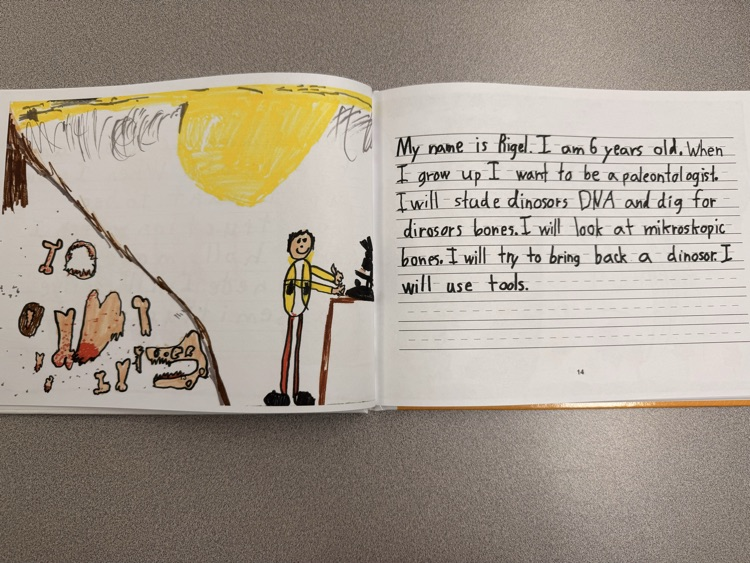 My name is Rigel. I am 6 years old. When
I grow up I want to be a paleontologist.
I will stude dinosors DNA and dig for
dirosors bones. I will look at mikroskopic
bones. I will try to bring back a dinosor. I
will use tools.
14